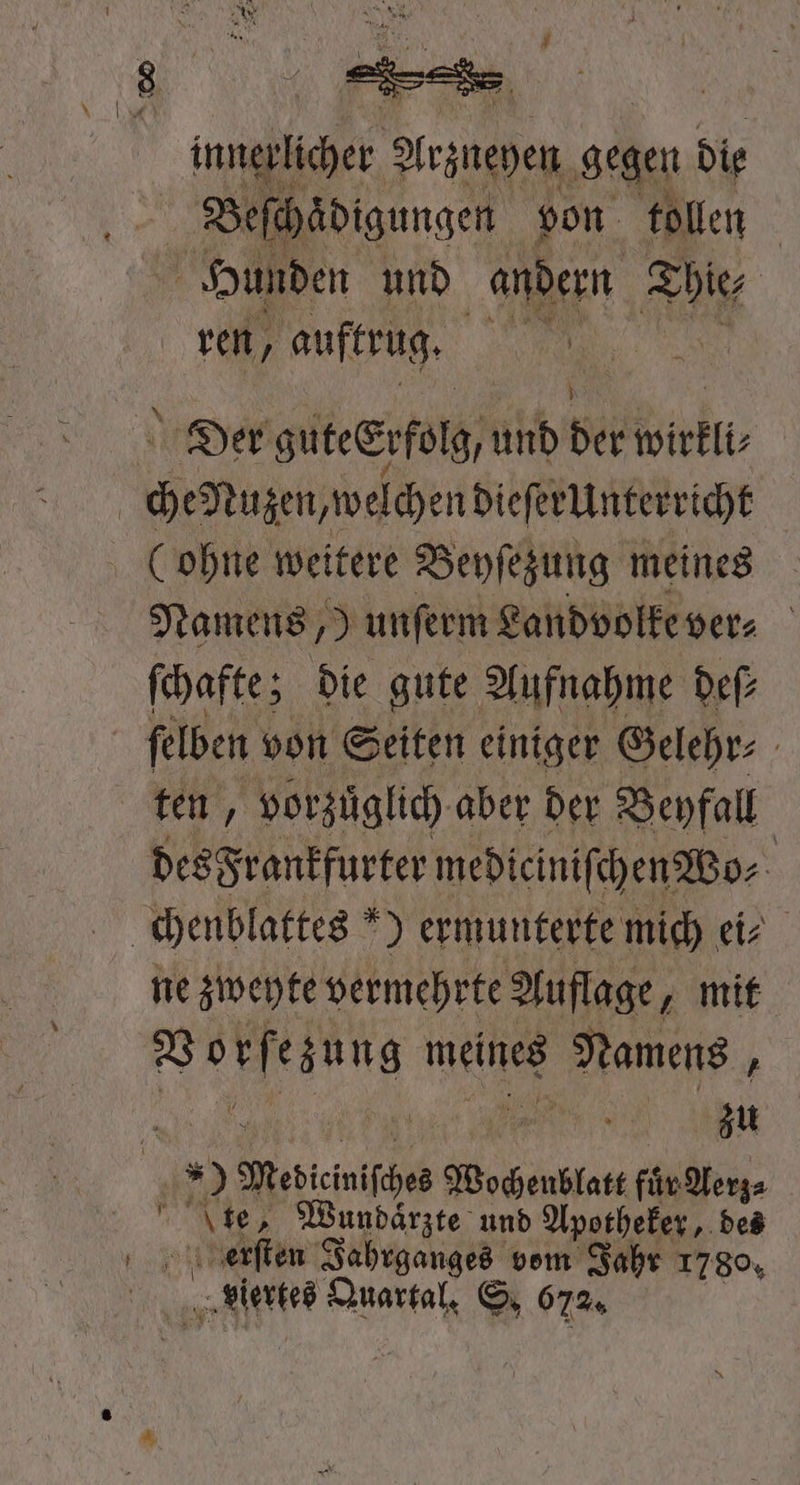 8
innerlicher Arzneyen gegen die
Beſchaͤdigungen von tollen
Hunden und andern Thie⸗
ren, auftrug.
Der gute Erfolg, und der wirkli⸗
che Nuzen, welchen dieſer Unterricht
(ohne weitere Beyſezung meines
Namens,) unſerm Landvolke ver⸗
ſchafte; die gute Aufnahme deſ⸗
ſelben von Seiten einiger Gelehr⸗
ten, vorzuͤglich aber der Beyfall
des Frankfurter mediciniſchen Wo⸗
chenblattes *) ermunterte mich ei⸗
ne zweyte vermehrte Auflage, mit
Vorſezung meines Namens,
zu
*) Mediciniſches Wochenblatt fuͤr Aerz⸗
te, Wundaͤrzte und Apotheker, des
erſten Jahrganges vom Jahr 1780,
viertes Quartal, S, 672.